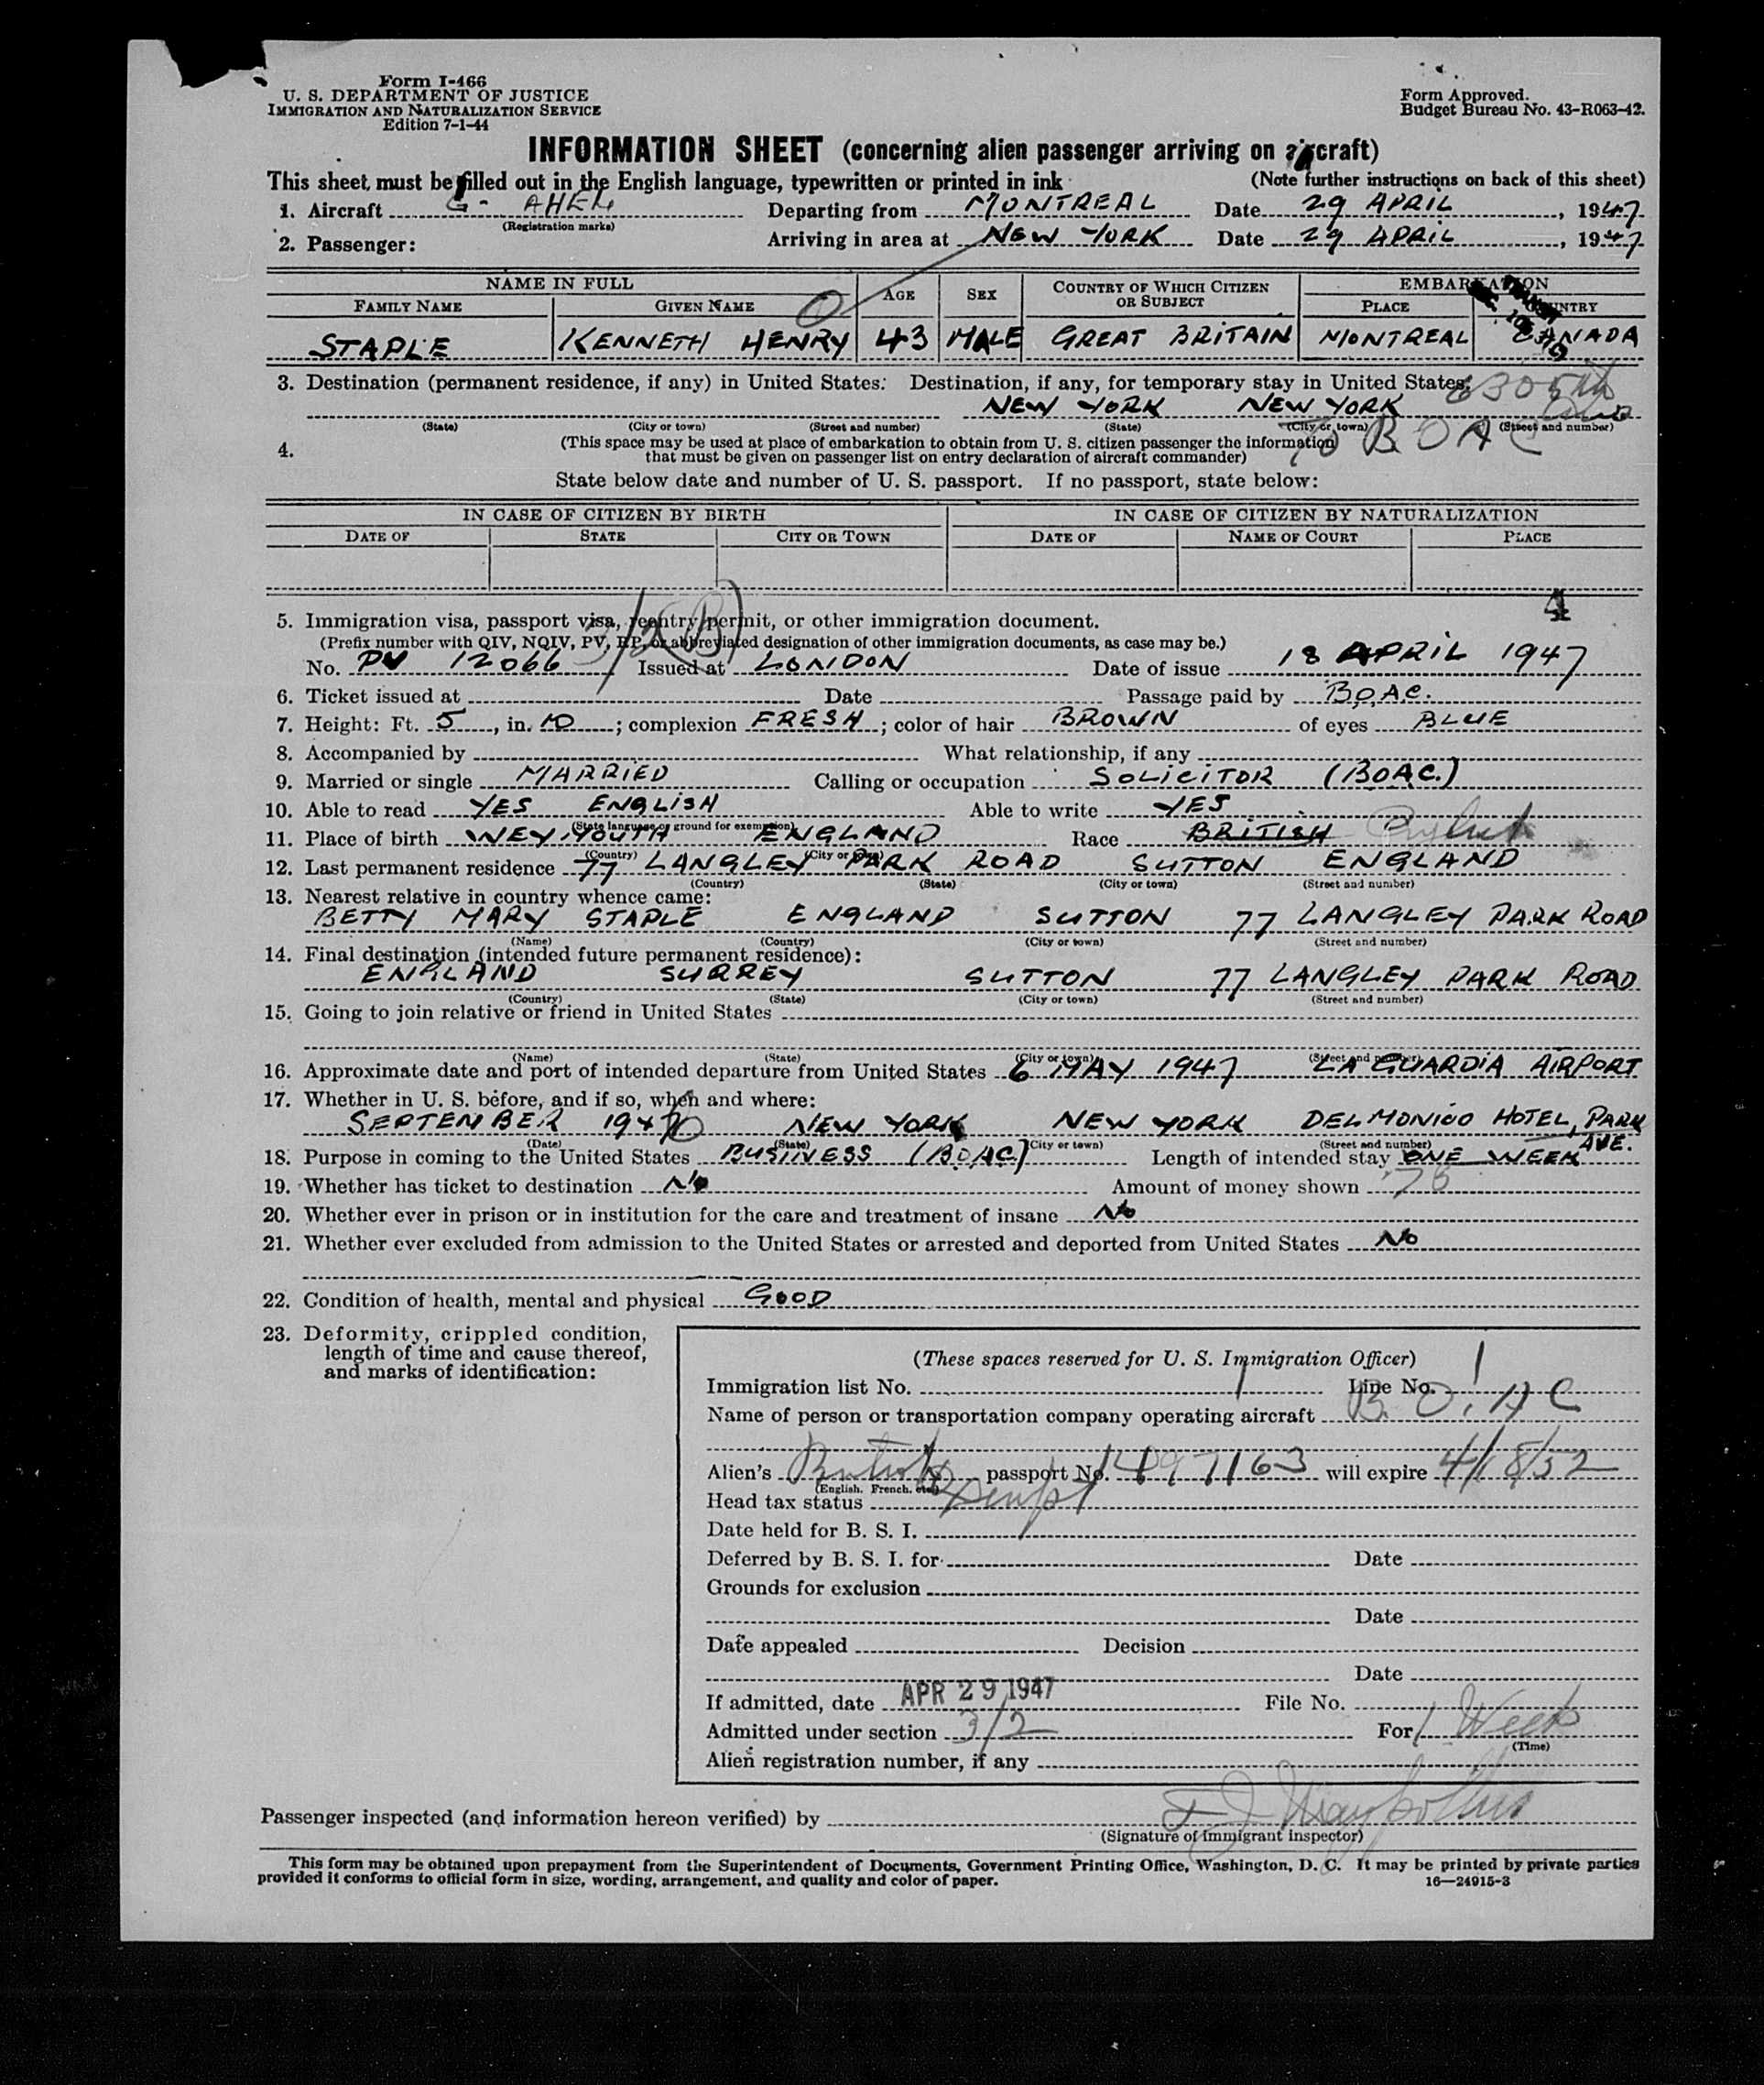 Form I-466
U. S. DEPARTMENT OF JUSTICE
IMMIGRATION AND NATURALIZATION SERVICE
Edition 7-1-44
Form Approved.
Budget Bureau No. 43-R063-42.
INFORMATION SHEET (concerning alien passenger arriving on aircraft)
This sheet must be filled out in the English language, typewritten or printed in ink (Note further instructions on back of this sheet)
1. Aircraft G- Departing from MONTREAL Date 29 APRIL, 1947
(Registration marks)
2. Passenger: Arriving in area at NEW YORK Date 29 APRIL, 1947
NAME IN FULL AGE SEX COUNTRY OF WHICH CITIZEN OR SUBJECT EMBARKATION
FAMILY NAME GIVEN NAME PLACE COUNTRY
STAPLE KENNETH HENRY 43 MALE GREAT BRITAIN MONTREAL CANADA
3. Destination (permanent residence, if any) in United States: Destination, if any, for temporary stay in United States:
NEW YORK NEW YORK 630 5th
(State) (City or town) (Street and number) (State) (City or town) (Street and number)
4. (This space may be used at place of embarkation to obtain from U. S. citizen passenger the information
that must be given on passenger list on entry declaration of aircraft commander)
BOAC
State below date and number of U. S. passport. If no passport, state below:
IN CASE OF CITIZEN BY BIRTH IN CASE OF CITIZEN BY NATURALIZATION
DATE OF STATE CITY OR TOWN DATE OF NAME OF COURT PLACE
4
5. Immigration visa, passport visa, reentry permit, or other immigration document.
3/2(B)
(Prefix number with QIV, NQIV, PV, RP, or abbreviated designation of other immigration documents, as case may be.)
No. PV 12066 Issued at LONDON Date of issue 18 APRIL 1947
6. Ticket issued at Date Passage paid by B.O.A.C.
7. Height: Ft. 5, in. 10; complexion FRESH; color of hair BROWN of eyes BLUE
8. Accompanied by What relationship, if any
9. Married or single MARRIED Calling or occupation SOLICITOR (BOAC.)
10. Able to read YES ENGLISH Able to write YES
(State language or ground for exemption)
11. Place of birth WEYMOUTH ENGLAND Race BRITISH
(Country) (City or town)
12. Last permanent residence 77 LANGLEY PARK ROAD SUTTON ENGLAND
(Country) (State) (City or town) (Street and number)
13. Nearest relative in country whence came:
BETTY MARY STAPLE ENGLAND SUTTON 77 LANGLEY PARK ROAD
(Name) (Country) (City or town) (Street and number)
14. Final destination (intended future permanent residence):
ENGLAND SURREY SUTTON 77 LANGLEY PARK ROAD
(Country) (State) (City or town) (Street and number)
15. Going to join relative or friend in United States
(Name) (State) (City or town) (Street and number)
16. Approximate date and port of intended departure from United States 6 MAY 1947 LA GUARDIA AIRPORT
17. Whether in U. S. before, and if so, when and where:
SEPTEMBER NEW YORK NEW YORK DELMONICO HOTEL, PARK AVE.
(Date) (State) (City or town) (Street and number)
18. Purpose in coming to the United States BUSINESS (B.O.A.C) Length of intended stay ONE WEEK
19. Whether has ticket to destination No Amount of money shown
20. Whether ever in prison or in institution for the care and treatment of insane No
21. Whether ever excluded from admission to the United States or arrested and deported from United States No
22. Condition of health, mental and physical GOOD
23. Deformity, crippled condition,
length of time and cause thereof,
and marks of identification:
(These spaces reserved for U. S. Immigration Officer)
Immigration list No. 1 Line No. 1
Name of person or transportation company operating aircraft B.O.A C
Alien's British passport No. 1497163 will expire 4/18/52
(English, French, etc.)
Head tax status Exempt
Date held for B. S. I.
Deferred by B. S. I. for Date
Grounds for exclusion
Date
Date appealed Decision
Date
If admitted, date APR 29 1947 File No.
Admitted under section 3/2 For 1 Week
(Time)
Alien registration number, if any
Passenger inspected (and information hereon verified) by
(Signature of immigrant inspector)
This form may be obtained upon prepayment from the Superintendent of Documents, Government Printing Office, Washington, D. C. It may be printed by private parties
provided it conforms to official form in size, wording, arrangement, and quality and color of paper. 16—24915-3